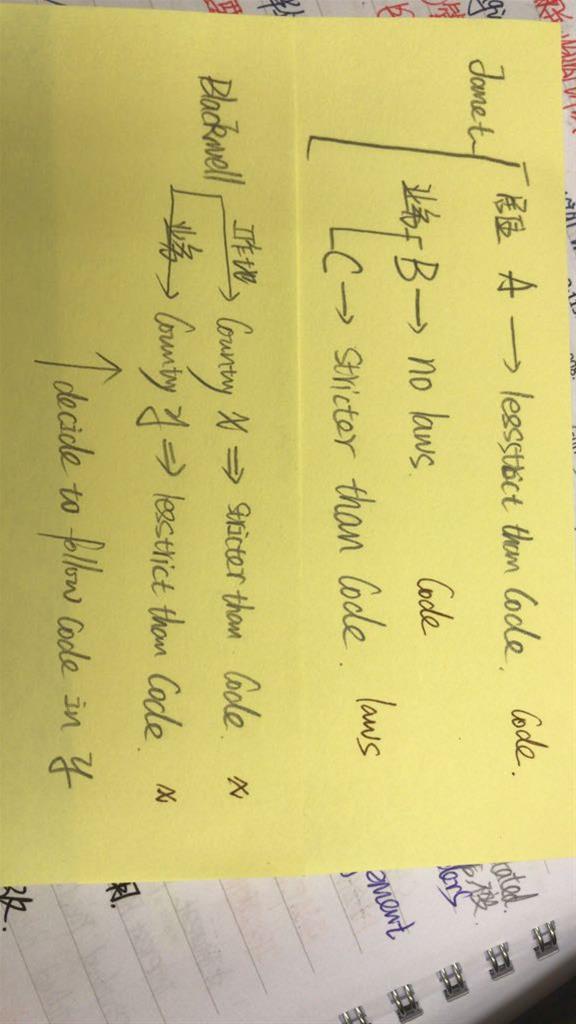 Janet
居住 A → lessstrict than Code. Code.
业务 B → no laws. Code
C → stricter than Code. laws
Blackwell
工作地 → Country X ⇒ stricter than Code. x
业务 → Country Y ⇒ lesstrict than Code. x
↑ decide to follow Code in Y